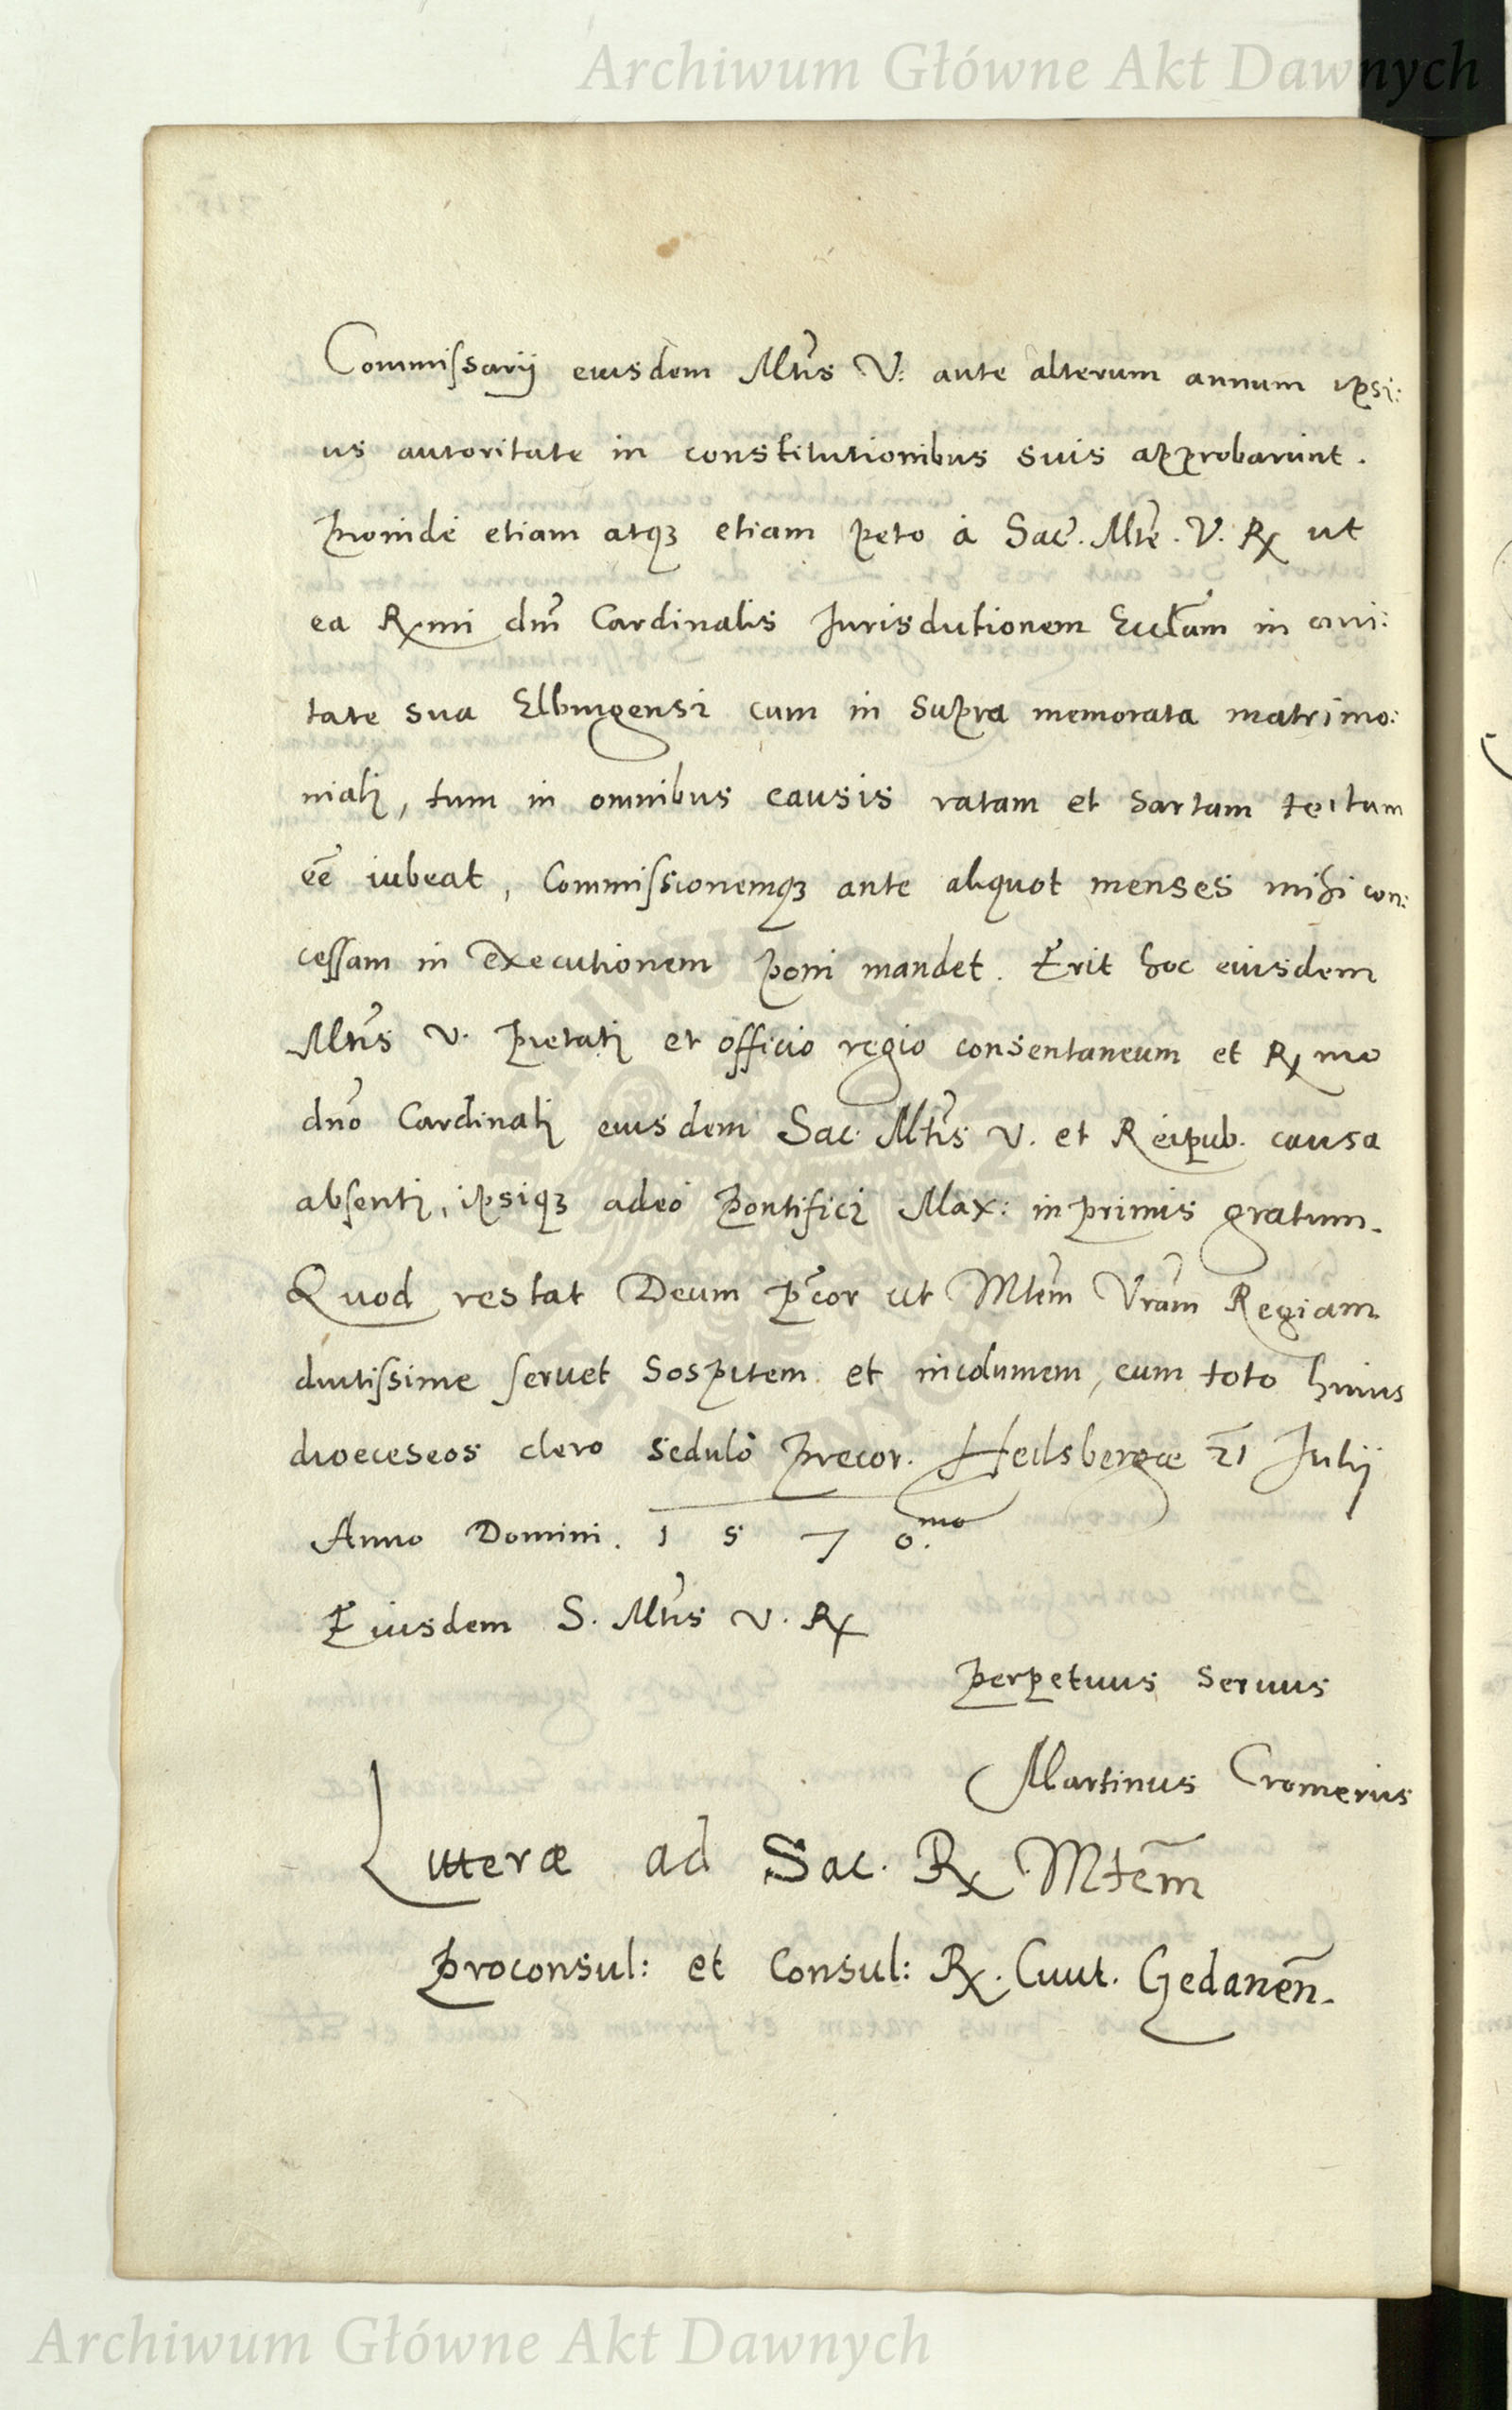 Archiwum Główne Akt Dawnych
Commissarij eiusdem Mtis V: ante alterum annum ipsi:
us autoritate in constitutionibus suis approbarunt.
Proinde etiam atq3 etiam peto à Sac. Mte. V. R ut
ea Rmi dni Cardinalis Jurisdictionem Ecclam in civi:
tate sua Elbingensi cum in supra memorata matrimo:
niali, tum in omnibus causis ratam et sartam tectam
eē iubeat, Commissionemq3 ante aliquot menses mihi con:
cessam in executionem poni mandet. Erit hoc eiusdem
Mtis V. pietati et officio regio consentaneum et Rmo
dno Cardinali eiusdem Sac. Mtis V. et Reipub. causa
absenti, ipsiq3 adeò Pontifici Max: in primis gratum.
Quod restat Deum p̄cor ut Mtem Vram Regiam
diutissime servet sospitem et incolumem, cum toto huius
dioeceseos clero sedulò precor. Heilsbergae 21 Julij
Anno Domini. 1 5 7 0.mo
Eiusdem S. Mtis V. R
Perpetuus servus
Martinus Cromerus
Litterae ad Sac. R Mtem
Proconsul: et Consul: R. Civit. Gedanen̄.
Archiwum Główne Akt Dawnych